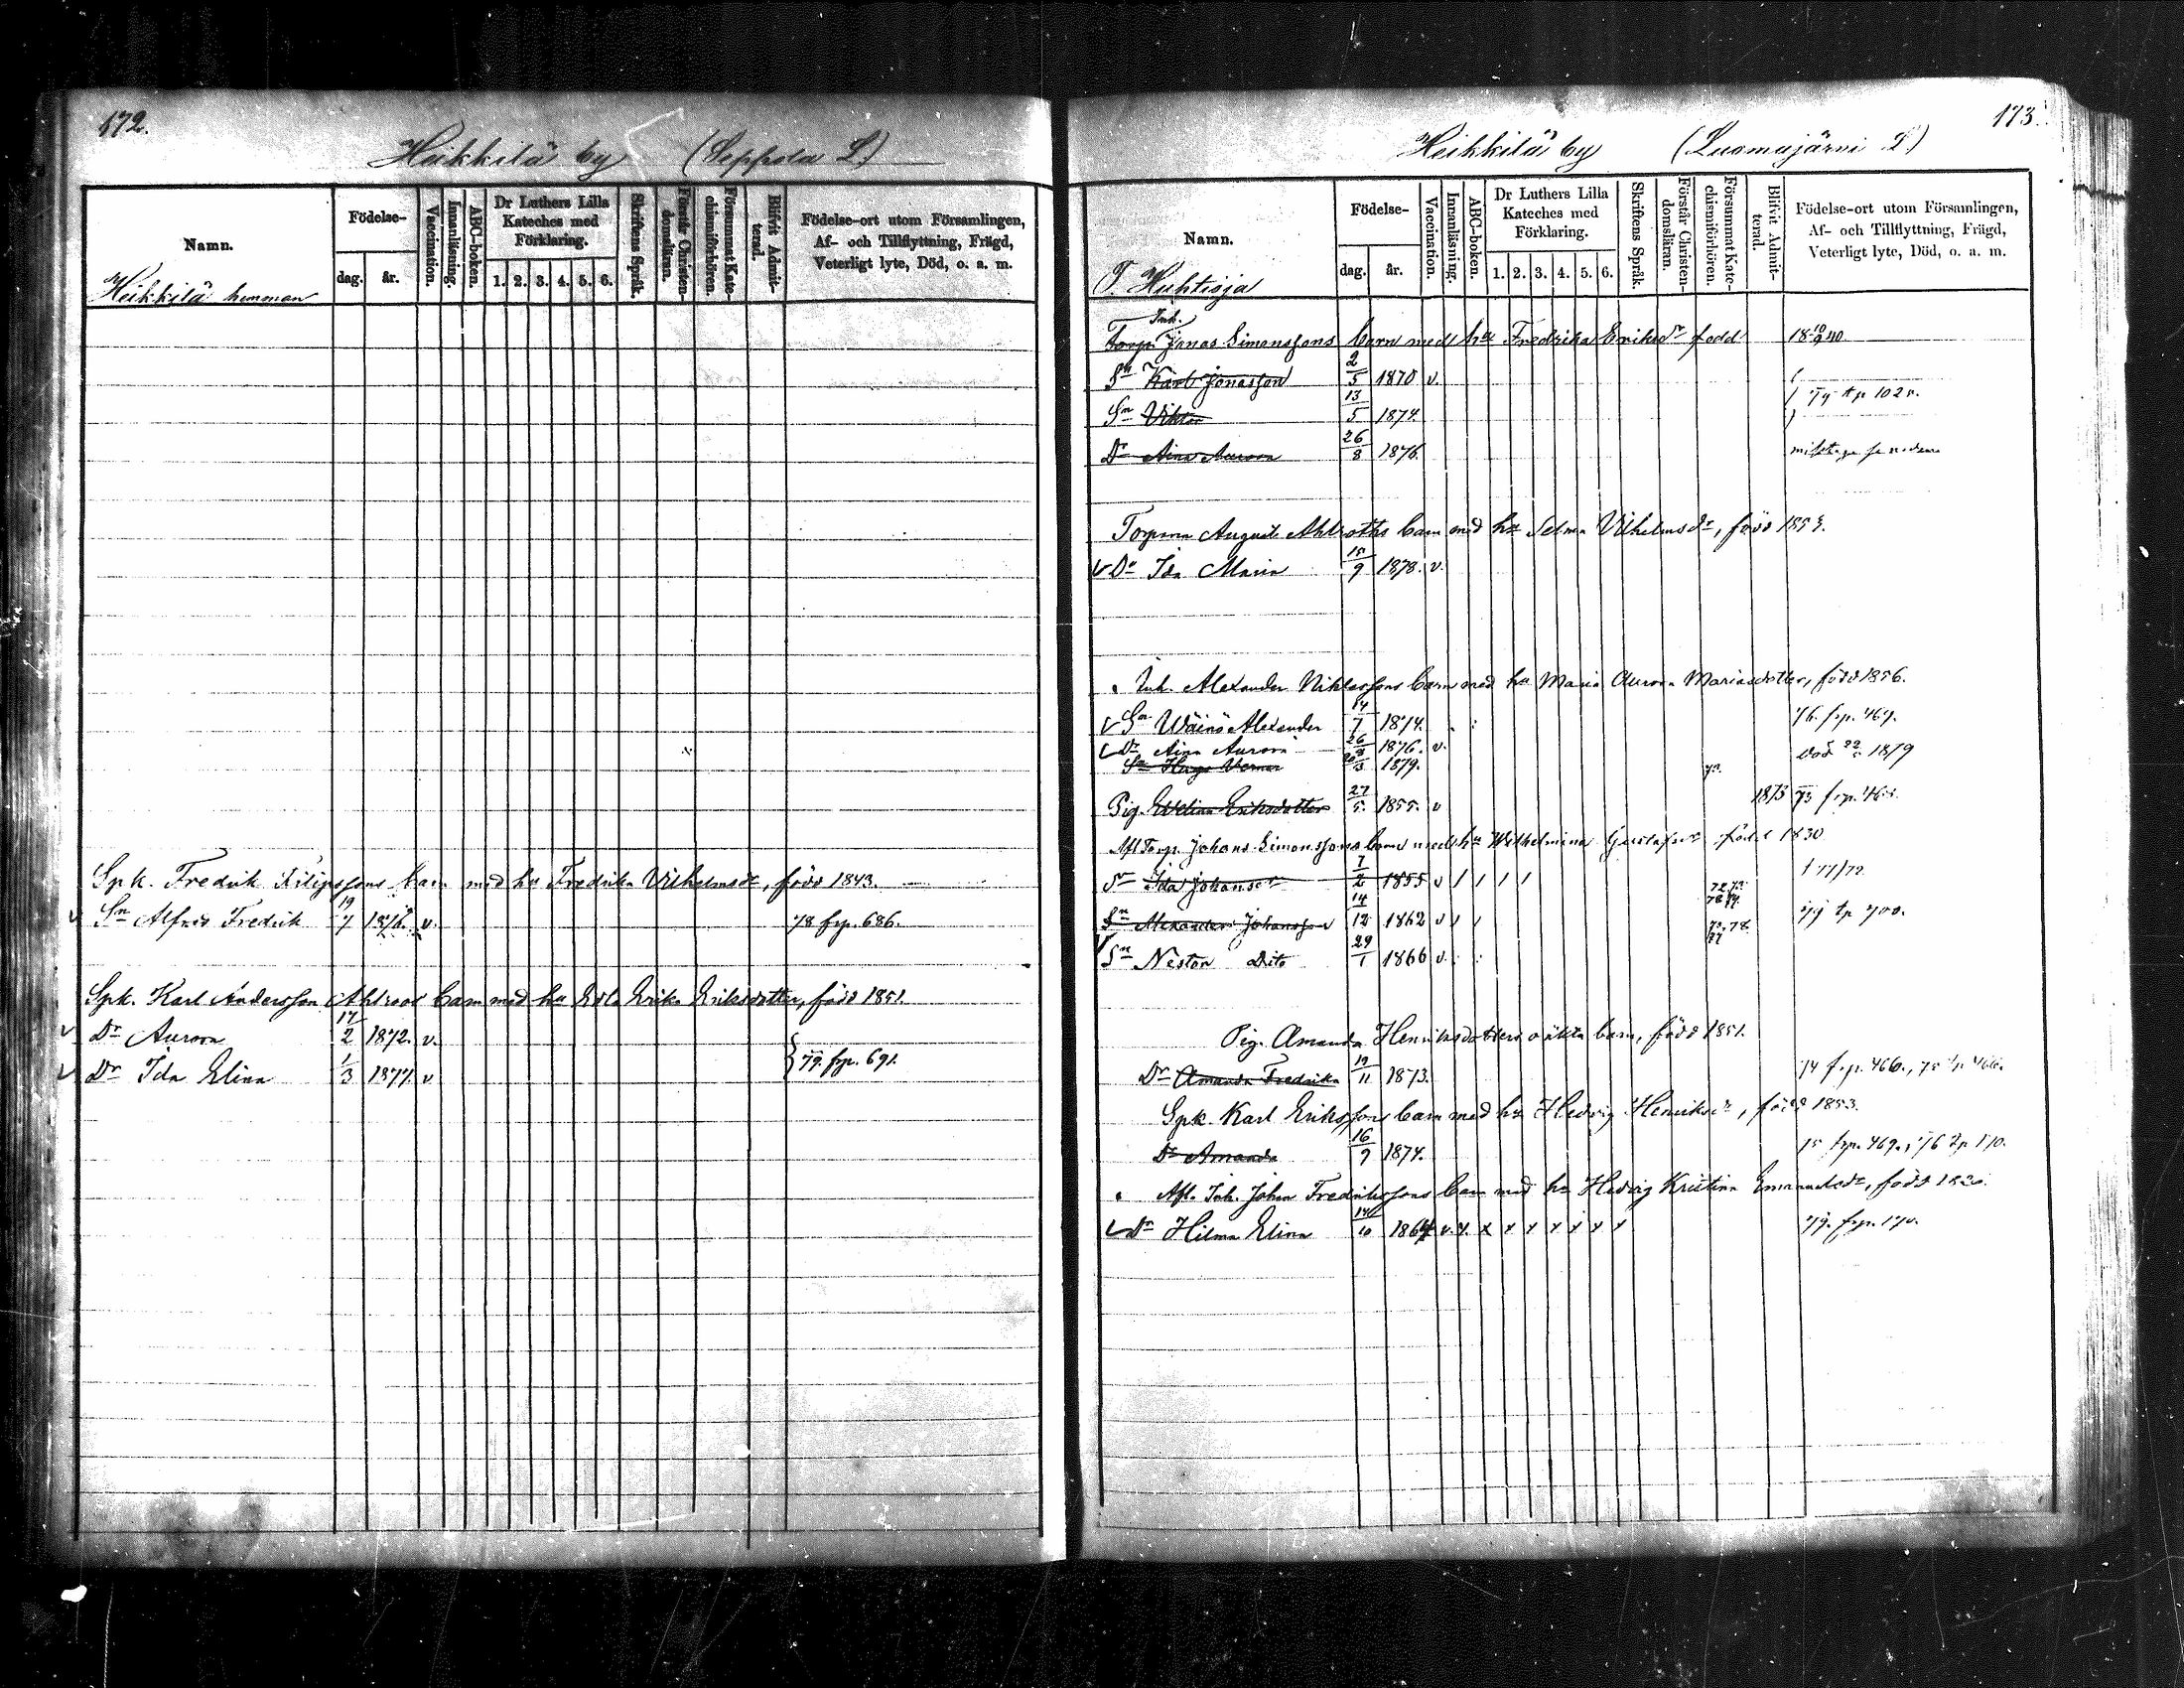 172.
Heikkilä by (Seppola L.)
Namn.
Födelse-
dag. år.
Vaccination.
Innanläsning.
ABC-boken.
Dr Luthers Lilla Kateches med Förklaring.
1. 2. 3. 4. 5. 6.
Skriftens Språk.
Förstår Christen-domsläran.
Försummat Kate-chismiförhören.
Blifvit Admit-terad.
Födelse-ort utom Församlingen,
Af- och Tillflyttning, Frägd,
Veterligt lyte, Död, o. a. m.
Heikkilä hemman
Spk. Fredrik Filipssons barn med hu Fredrika Vilhelmsdr, född 1843.
Sn Alfred Fredrik 19/7 1876. v. 78 frp. 686.
Spk. Karl Andersson Ahlroos barn med hu Edla Erika Eriksdotter, född 1851.
Dr Aurora 17/2 1872. v.
Dr Ida Elina 1/3 1877. v 79. frp. 691.
173.
Heikkilä by (Luomajärvi L.)
Namn.
Födelse-
dag. år.
Vaccination.
Innanläsning.
ABC-boken.
Dr Luthers Lilla Kateches med Förklaring.
1. 2. 3. 4. 5. 6.
Skriftens Språk.
Förstår Christen-domsläran.
Försummat Kate-chismiförhören.
Blifvit Admit-terad.
Födelse-ort utom Församlingen,
Af- och Tillflyttning, Frägd,
Veterligt lyte, Död, o. a. m.
T. Huhtioja
Inh.
Torp. Jonas Simonssons barn med hu Fredrika Eriksdr född 18 10/9 40
Sn Karl Jonasson 2/5 1870 v.
Sn Viktor 13/5 1874. 79 tp 102
Dr Aina Aurora 26/8 1876.
Torparen August Ahlroths barn med hu Selma Vilhelmsdr, född
v Dr Ida Maria 15/9 1878. v.
Inh. Alexander Niklassons barn med hu Maria Aurora Mariasdotter, född 1856.
v Sn Wäinö Alexander 14/7 1874. 76. frp. 469.
v Dr Aina Aurora 26/8 1876. v.
Sn Hugo Verner 20/3 1879. död 1879
Pig. Evelina Eriksdotter 27/5 1855. v 1873 73 frp. 465.
Afl Torp. Johans Simonssons barn med hu Wilhelmina Gustafsdr född 1830
Dr Ida Johansdr 7/2 1855 v / / / /
Sn Alexander Johansson 14/12 1862 v / / 79 tp 700.
v Sn Nestor Dito 29/1 1866 v.
Pig. Amanda Henriksdotters oäkta barn, född 1851.
Dr Amanda Fredrika 19/11 1873. 74 frp. 466., 75 tp 466.
Spk. Karl Erikssons barn med hu Hedvig Henriksdr, född 1853.
Dr Amanda 16/9 1874. 75 frp. 469., 76 tp 170.
Afl. Inh. Johan Fredrikssons barn med hu Hedvig Kristina Emanuelsdr, född 1830.
v Dr Hilma Elina 14/10 1864 v. x. x x x x x x x 79. frp. 170.